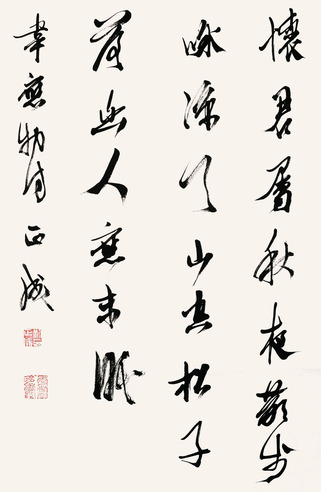 懷君屬秋夜散步
詠涼天山空松子
落幽人應未眠
韋應物詩 正成